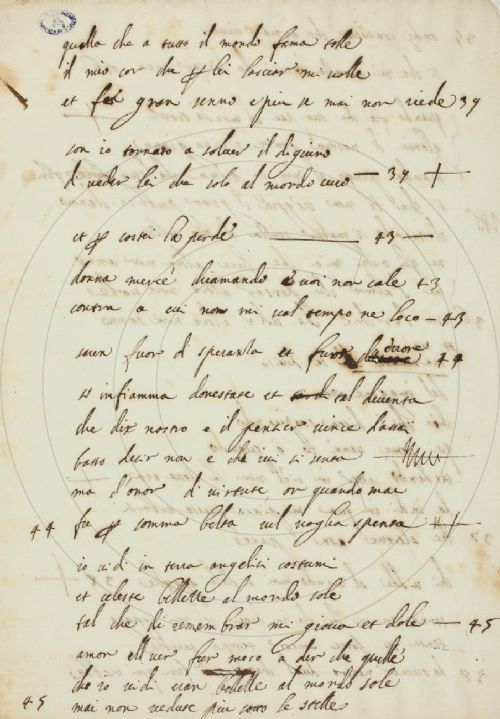 quella che a tutto il mondo fama tolle
il mio cor che p lei lasciar mi volle
et fe gran senno e piu se mai non riede 39
son io tornato a solver il digiuno
di veder lei che sola al mondo curo — 39 +
et p costei la perde — 43 —
donna mercé chiamando e voi non cale 43
contra a cui non mi val tempo ne loco — 43
fuor di speranza et fuor derrore 44
infiamma donestate et tal diventa
che dir nostro e il pensier vince d'assai
basso desir non è che ivi si senta —
ma d'onor di virtute, or quando mai
44 fu p somma beltà vil voglia spenta ++
io vidi in terra angelici costumi
et celeste bellezze al mondo sole
tal che di rimembrar mi giova et dole — 45
amor e il ver fur meco a dir che quelle
che io vidi eran bellezze al mondo sole
45 mai non vedute piu sotto le stelle